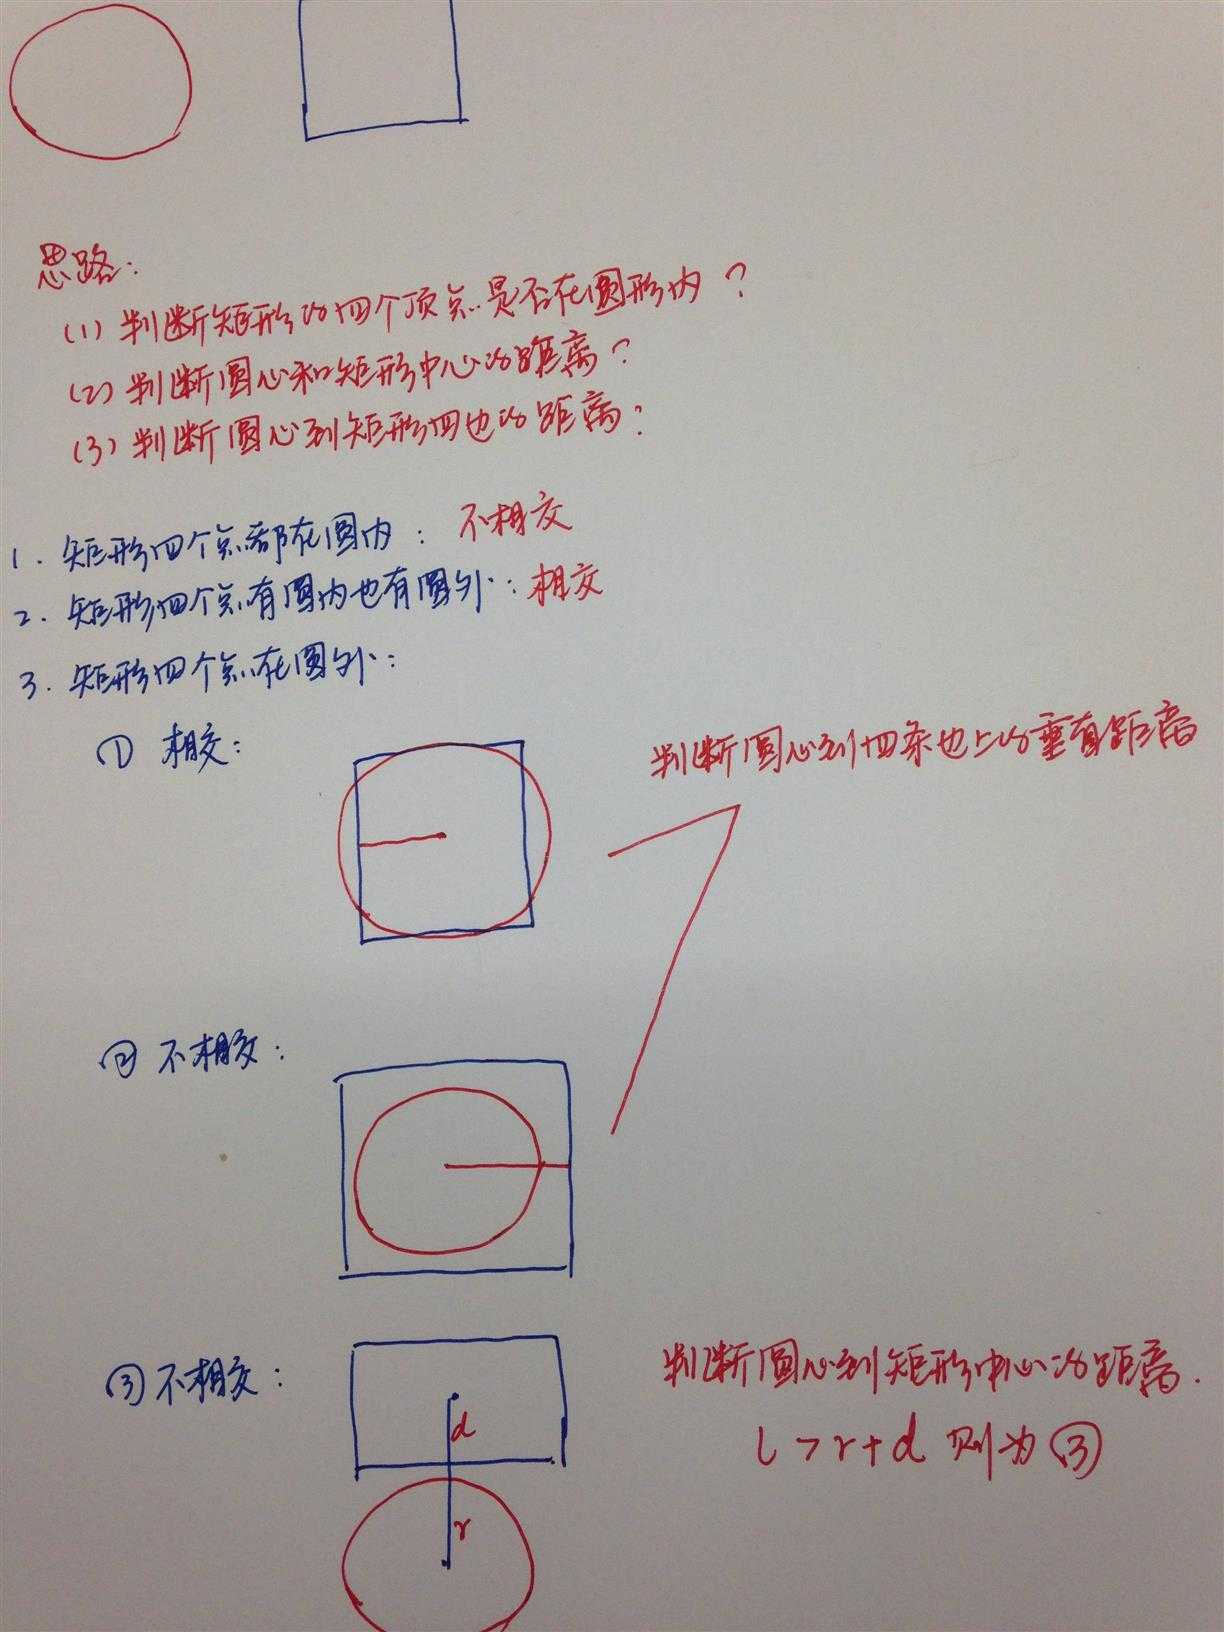 思路：
(1) 判断矩形的四个顶点是否在圆形内？
(2) 判断圆心和矩形中心的距离？
(3) 判断圆心到矩形四边的距离？
1. 矩形四个点都在圆内：不相交
2. 矩形四个点有圆内也有圆外：相交
3. 矩形四个点在圆外：
① 相交：
判断圆心到四条边上的垂直距离
② 不相交：
③ 不相交：
判断圆心到矩形中心的距离.
d
l > r + d 则为③
r